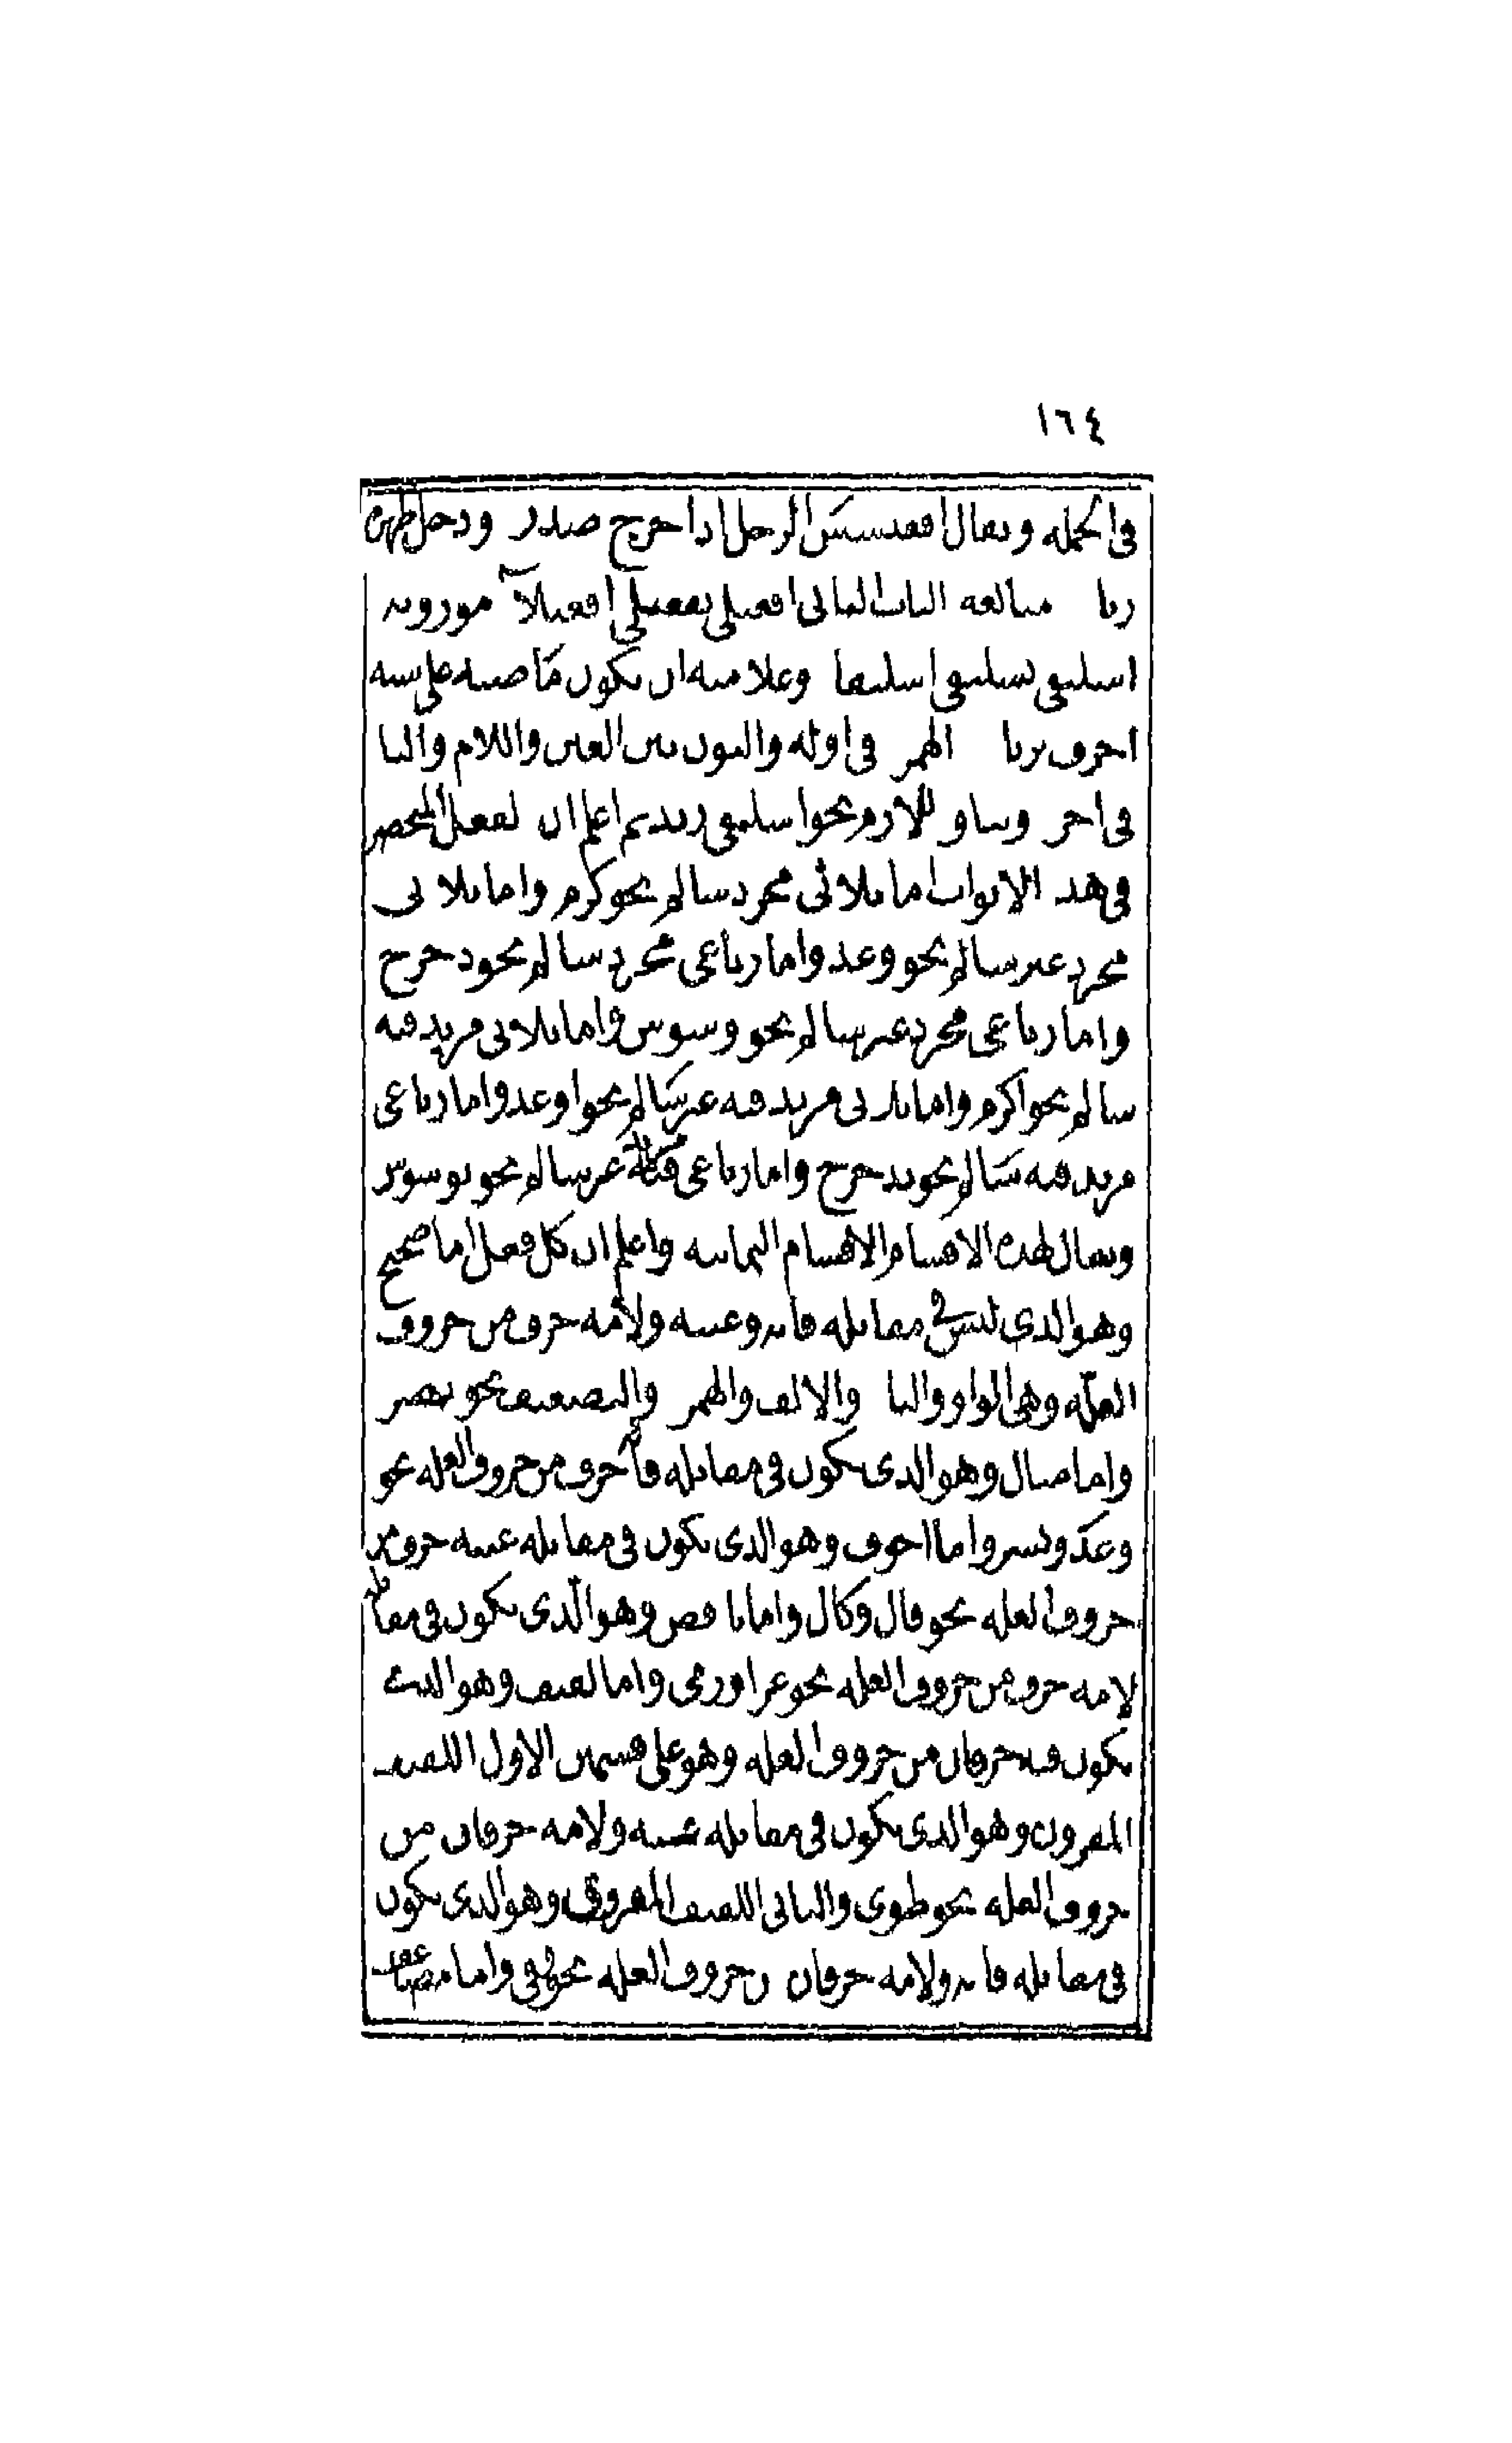 ١٦٤
في الجملة ويقال اقعنسس الرجل اذا خرج صدره ودخل ظهره
زيادة مبالغة الباب الثاني افعنلى يفعنلي افعنلاء موزونه
اسلنقى يسلنقي اسلنقاء وعلامته ان يكون ماضيه على ستة
احرف بزيادة الهمزة في اوله والنون بين العين واللام والياء
في آخره وبناؤه للازم نحو اسلنقى زيد ثم اعلم ان الفعل المنحصر
في هذه الابواب اما ثلاثي مجرد سالم نحو كرم واما ثلاثي
مجرد غير سالم نحو وعد واما رباعي مجرد سالم نحو دحرج
واما رباعي مجرد غير سالم نحو وسوس واما ثلاثي مزيد فيه
سالم نحو اكرم واما ثلاثي مزيد فيه غير سالم نحو اوعد واما رباعي
مزيد فيه سالم نحو تدحرج واما رباعي مزيد فيه غير سالم نحو توسوس
ويقال لهذه الاقسام الاقسام الثمانية واعلم ان كل فعل اما صحيح
وهو الذي ليس في مقابلة فائه وعينه ولامه حرف من حروف
العلة وهي الواو والياء والالف والهمزة والتضعيف نحو نصر
واما مثال وهو الذي يكون في مقابلة فائه حرف من حروف العلة نحو
وعد ويسر واما اجوف وهو الذي يكون في مقابلة عينه حرف من
حروف العلة نحو قال وكال واما ناقص وهو الذي يكون في مقابلة
لامه حرف من حروف العلة نحو غزا ورمى واما لفيف وهو الذي
يكون فيه حرفان من حروف العلة وهو على قسمين الاول اللفيف
المقرون وهو الذي يكون في مقابلة عينه ولامه حرفان من
حروف العلة نحو طوى والثاني اللفيف المفروق وهو الذي يكون
في مقابلة فائه ولامه حرفان من حروف العلة نحو وقى واما مضاعف